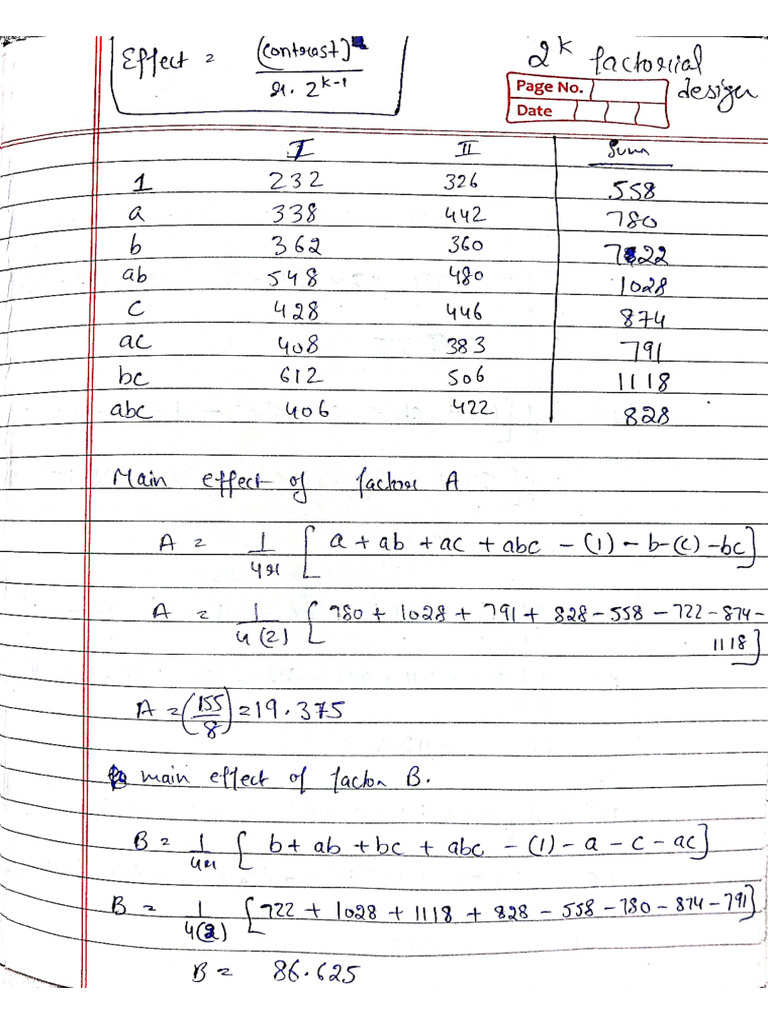 Effect = (Contrast) / r. 2^k-1
2^k factorial design
Page No.
Date
I II Sum
1 232 326 558
a 338 442 780
b 362 360 722
ab 548 480 1028
c 428 446 874
ac 408 383 791
bc 612 506 1118
abc 406 422 828
Main effect of factor A
A = 1/4r [a + ab + ac + abc - (1) - b - (c) - bc]
A = 1/4(2) [780 + 1028 + 791 + 828 - 558 - 722 - 874 -
1118]
A = (155/8) = 19.375
main effect of factor B.
B = 1/4r [b + ab + bc + abc - (1) - a - c - ac]
B = 1/4(2) [722 + 1028 + 1118 + 828 - 558 - 780 - 874 - 791]
B = 86.625